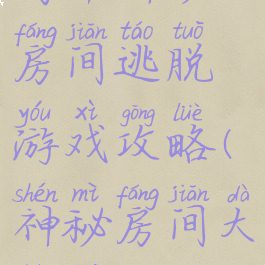 fáng jiān táo tuō
房间逃脱
yóu xì gōng lüè
游戏攻略(
shén mì fáng jiān dà
神秘房间大